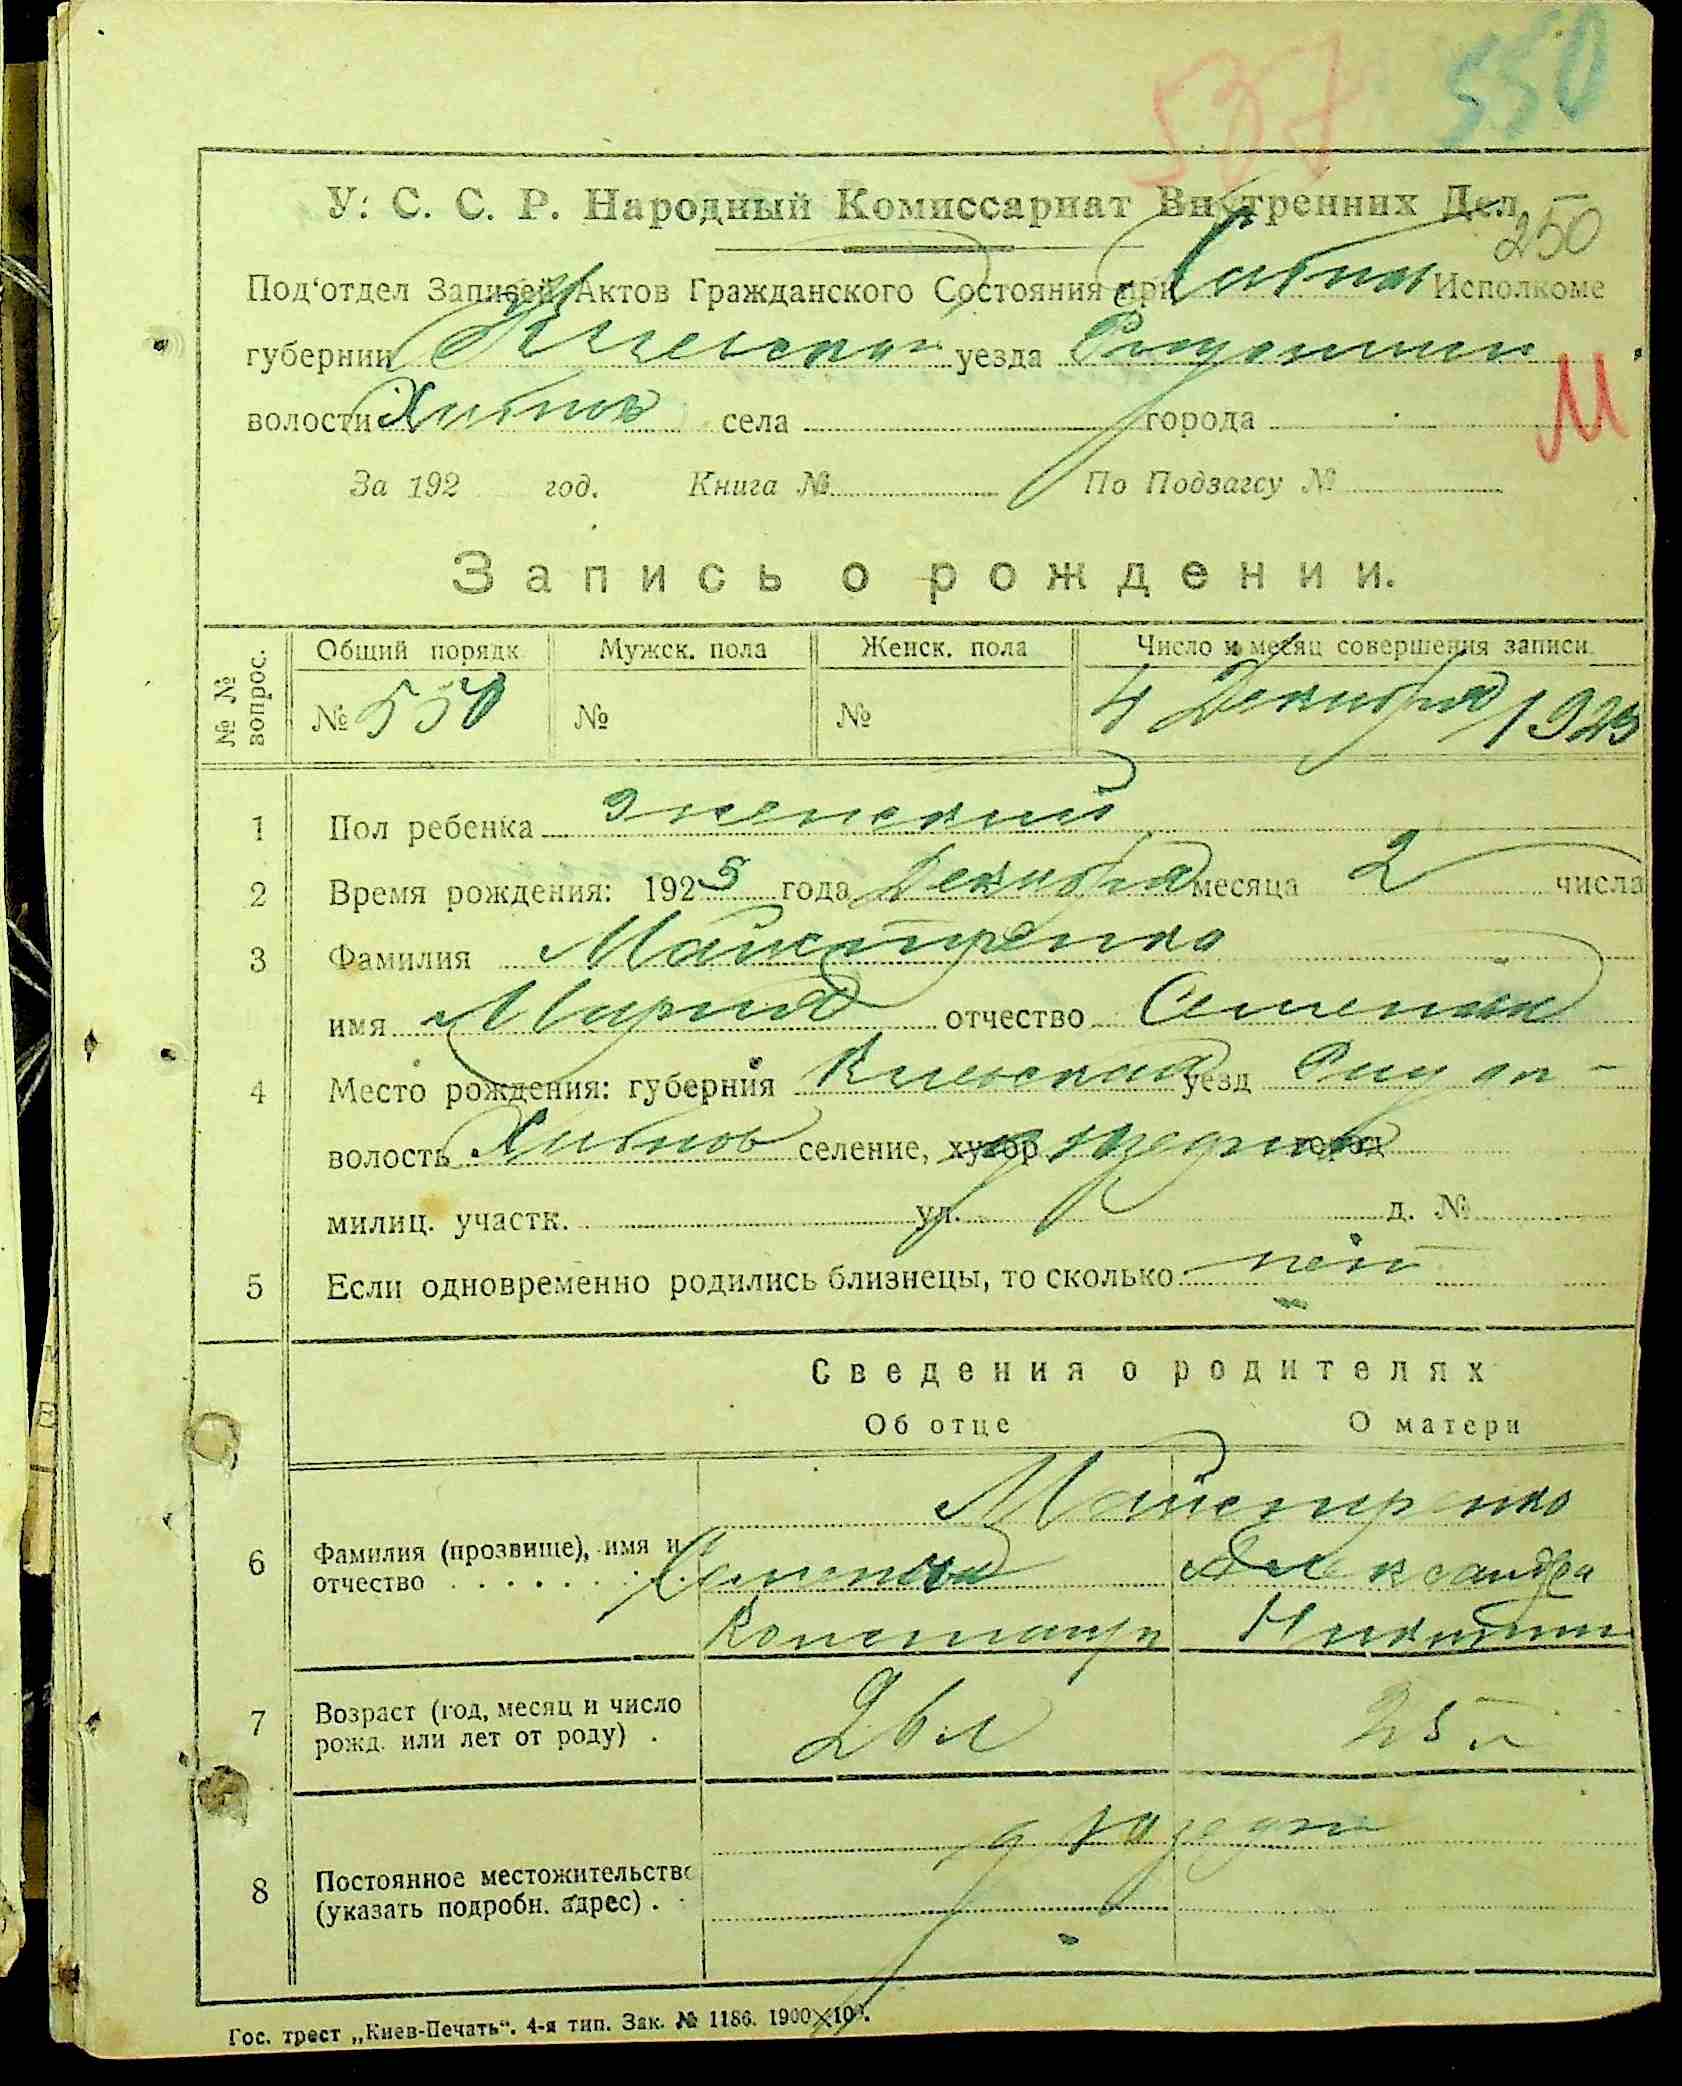 537 550
У. С. С. Р. Народный Комиссариат Внутренних Дел
250
Под'отдел Записей Актов Гражданского Состояния при Хабнов Исполкоме
губернии Киевской уезда
волости Хабнов села города
М
За 192 год. Книга № По Подзагсу №
Запись о рождении.
№ № вопрос. Общий порядк. Мужск. пола Женск. пола Число и месяц совершения записи.
№ 550 № № 4 Декабря 1923
1 Пол ребенка женский
2 Время рождения: 1923 года Декабря месяца 2 числа
3 Фамилия Майстренко
имя Мария отчество
4 Место рождения: губерния Киевская уезд
волость Хабнов селение, хутор город
милиц. участк. ул. д. №
5 Если одновременно родились близнецы, то сколько нет
Сведения о родителях
Об отце О матери
Майстренко
6 Фамилия (прозвище), имя и отчество Александра
Никитин
7 Возраст (год, месяц и число рожд. или лет от роду) . 26 л 25 л
8 Постоянное местожительство (указать подробн. адрес) .
Гос. трест „Киев-Печать“. 4-я тип. Зак. № 1186. 1900×100.